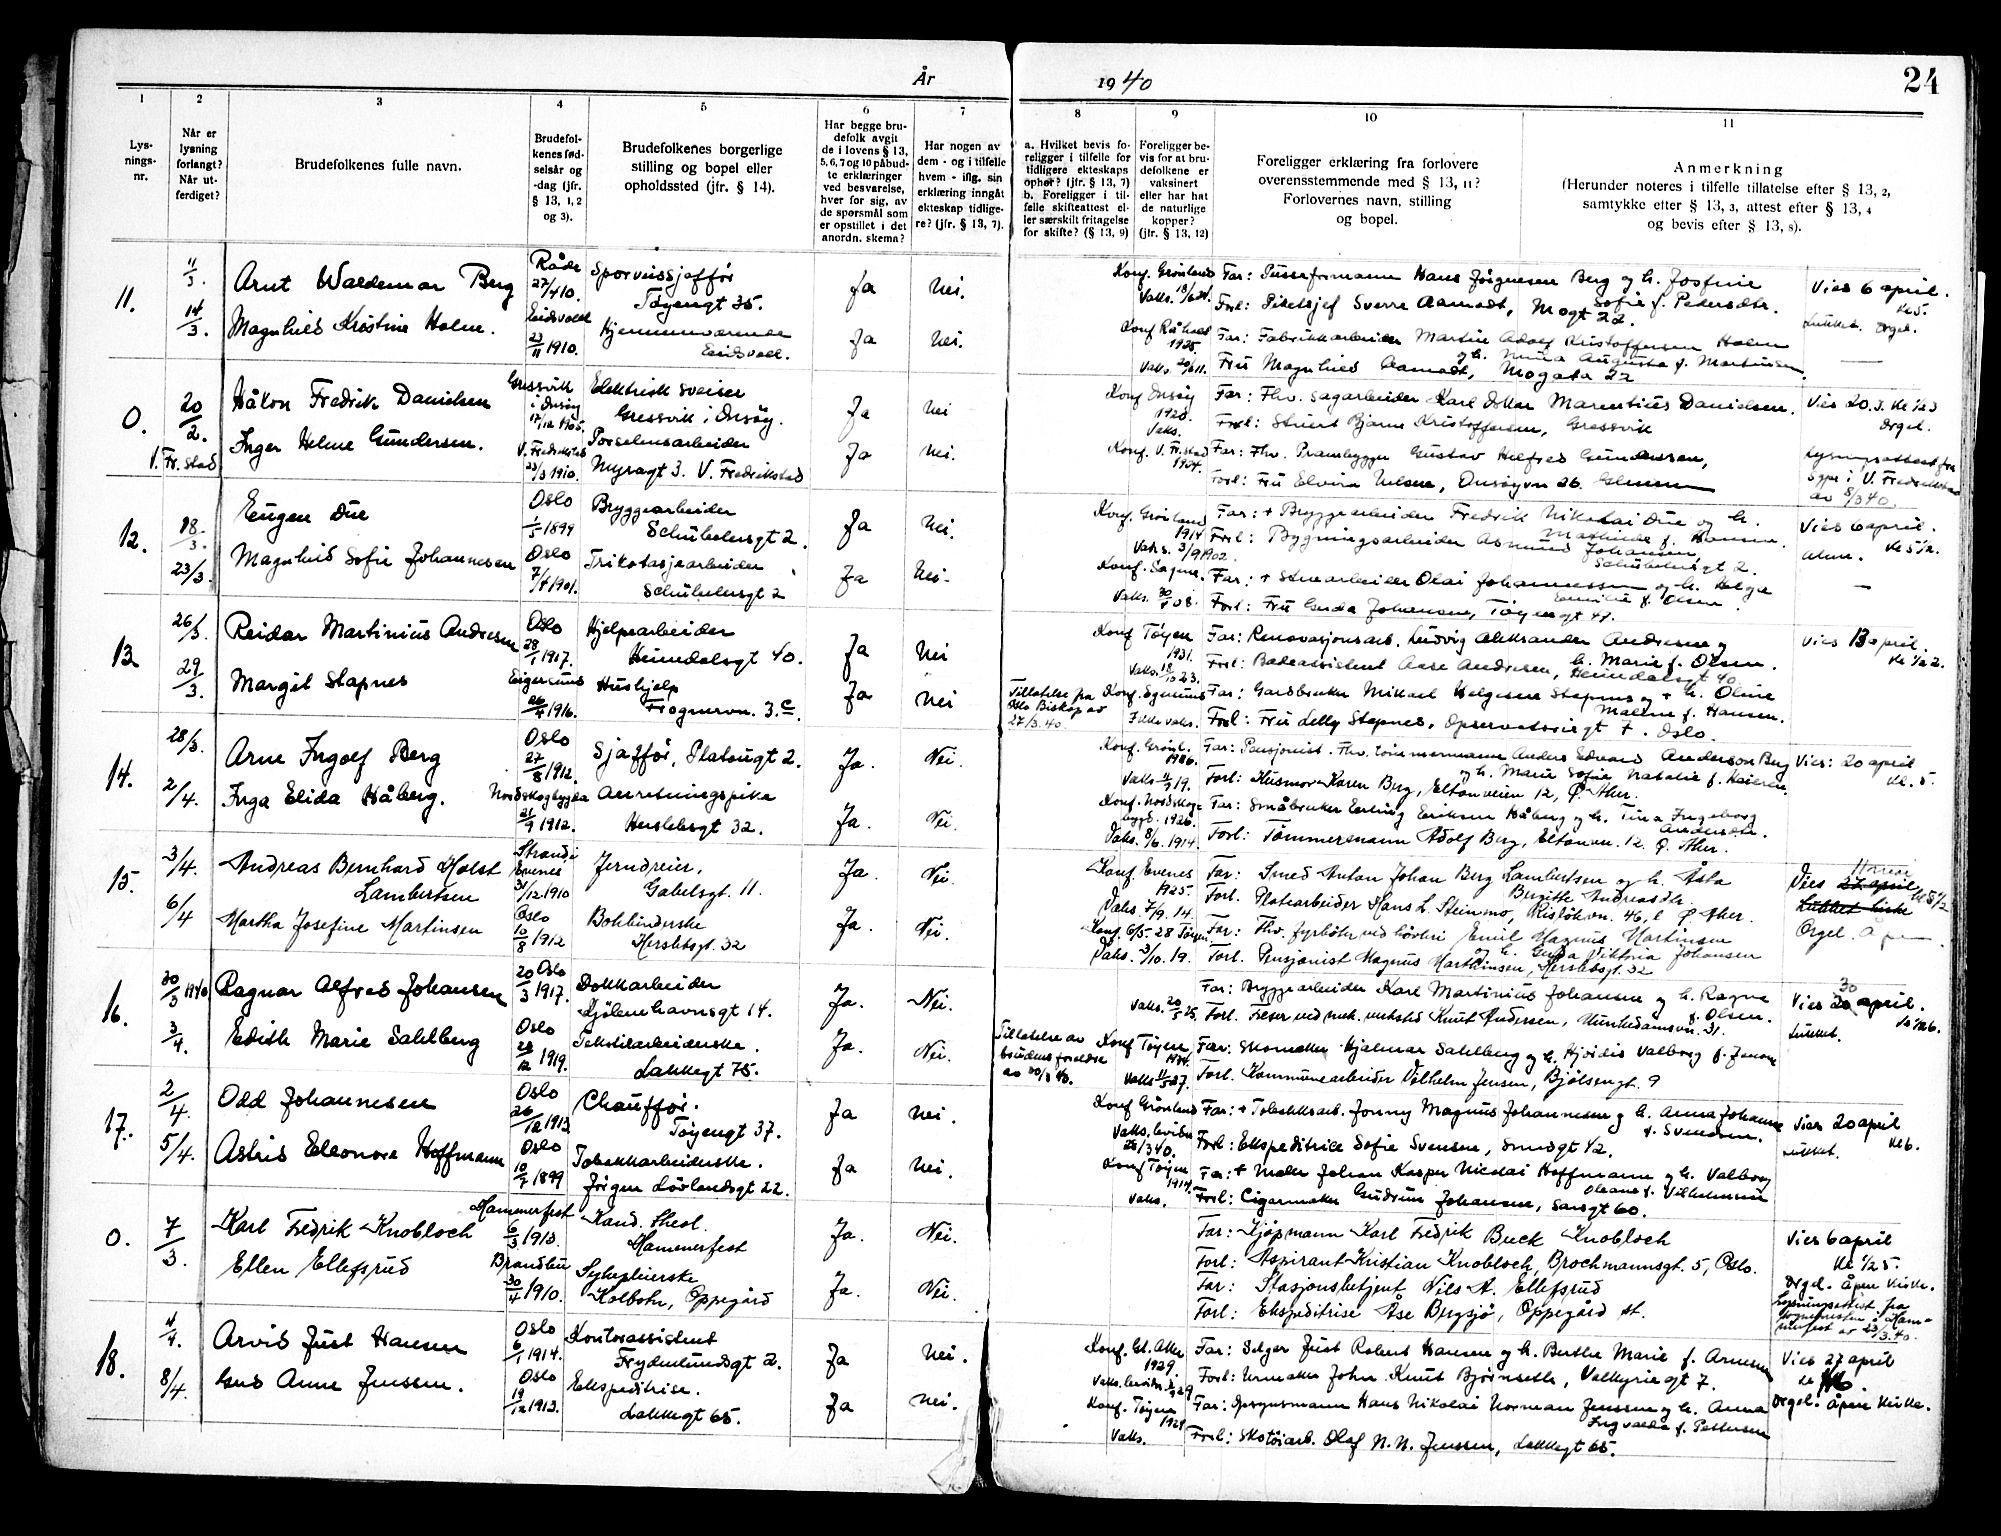 År 1940
24
1 2 3 4 5 6 7 8 9 10 11
Lys-
nings-
nr.
Når er
lysning
forlangt?
Når ut-
ferdiget?
Brudefolkenes fulle navn.
Brudefol-
kenes fød-
selsår og
-dag (jfr.
§ 13, 1, 2
og 3).
Brudefolkenes borgerlige
stilling og bopel eller
opholdssted (jfr. § 14).
Har begge bru-
defolk avgit
de i lovens § 13,
5, 6, 7 og 10 påbud-
te erklæringer
ved besvarelse,
hver for sig, av
de spørsmål som
er opstillet i det
anordn. skema?
Har nogen av
dem - og i tilfelle
hvem - iflg. sin
erklæring inngått
ekteskap tidlige-
re? (jfr. § 13, 7).
a. Hvilket bevis fo-
religger i tilfelle for
tidligere ekteskaps
ophør? (jfr. § 13, 7)
b. Foreligger i til-
felle skifteattest el-
ler særskilt fritagelse
for skifte? (§ 13, 9)
Foreligger be-
vis for at bru-
defolkene er
vaksinert
eller har hat
de naturlige
kopper?
(jfr. § 13, 12)
Foreligger erklæring fra forlovere
overensstemmende med § 13, 11?
Forlovernes navn, stilling
og bopel.
Anmerkning
(Herunder noteres i tilfelle tillatelse efter § 13, 2,
samtykke efter § 13, 3, attest efter § 13, 4
og bevis efter § 13, 8).
11.
11/3
14/3.
Arnt Waldemar Berg
Råde
27/4 10.
Sporveissjafför
Töyengt 35.
Ja
Nei.
Konf. Grönland
Vaks.
Far: Hans Jörgensen Berg og h. Josefine
Sofie f. Pedersdtr.
Forl: Sverre Aamodt, Mogt 22.
Vies 6 april.
Kl 5.
Lukket. Orgel.
Magnhild Kristine Holm.
Eidsvoll
23/11 1910.
Hjemmeværende
Eidsvoll.
Ja
Nei.
Konf Råholt
1925.
Far: Fabrikkarbeider Martin Adolf Kristoffersen Holm
og h. Anna Augusta f. Martinsen.
Fru Magnhild Aamodt, Mogata 22
0.
V. Fr.stad
20/2.
Håkon Fredrik Danielsen
Gressvik
i Onsöy
17/12 1905.
Elektrisk sveiser
Gressvik i Onsöy.
Ja
Nei
Konf Onsöy
1920.
Vaks.
Far: Fhv. sagarbeider Karl Oskar Marentius Danielsen.
Forl: Stuert Bjarne Kristoffersen, Gressvik
Vies 20.3. Kl 1/2 3
Orgel.
Inger Helene Gundersen.
V. Fredrikstad
23/3 1910.
Porselensarbeider
Nyragt 3. V. Fredrikstad
Ja
Nei.
Konf. V. Fr.stad
1924.
Far: Fhv. Prambygger Gustav Helfred Gundersen,
Forl: Fru Elvira Nilsen, Onsöyvn 26. Glemmen
Lysningsattest fra
Sgpr i V. Fredrikstad
av 8/3 40.
12.
18/3.
23/3.
Eugen Due
Oslo
1/5 1899
Bryggearbeider
Schübelersgt 2.
Ja
Nei.
Konf. Grönland
1914
Vaks. 3/9 1902.
Far: + Bryggearbeider Fredrik Nikolai Due og h.
Mathilde f. Hansen.
Forl: Bygningsarbeider Asmund Johansen,
Schübelersgt 2.
Vies 6 april.
Kl 5 1/2.
Alm.
Magnhild Sofie Johannesen
Oslo
7/4 1901.
Trikotasjearbeider
Schübelersgt 2
Ja
Nei.
Konf. Sagene.
Far: + Stuearbeider Olai Johannessen og h. Helga
Emilie f. Olsen.
Forl: Fru Gerda Johansen, Töyengt 47.
13
26/3.
29/3.
Reidar Martinius Andresen
Oslo
28/1 1917.
Hjelpearbeider
Heimdalsgt 40.
Ja
Nei
Konf Töyen
1931.
Vaks. 18/10 23.
Far: Renovasjonsarb. Ludvig Aleksander Andresen og
h. Marie f. Olsen.
Forl: Badeassistent Aase Andresen, Heimdalsgt 40
Vies 13 april.
Kl 1/2 2.
Margit Stapnes
Eigersund
26/4 1916.
Hushjelp
Frognervn. 3.c.
Ja
Nei
Tillatelse fra
Oslo Biskop av
27/3.40.
Konf. Egersund
Ikke vaks.
Far: Gardbruker Mikael Helgesen Stapnes og + h. Oline
Malene f. Hansen.
Forl: Fru Lelly Stapnes, Oslo.
14.
28/3.
2/4.
Arne Ingolf Berg
Oslo
27/8 1912.
Sjafför, Platougt 2.
Ja.
Nei.
Konf. Grönl.
Vaks 19.
Far: Pensjonist. Fhv. tömmermann Anders Edvard Anderson Berg
og h. Marie Sofie Natalie f. Kaierin.
Forl: Husmor Karen Berg, Eltonveien 12, Ö. Aker.
Vies: 20 april
Kl. 5.
Inga Elida Håberg.
Nordskogbygda
21/9 1912.
Anretningspike
Herslebsgt 32.
Ja.
Nei.
Konf. Nordskog-
bygd. 1926.
Vaks. 8/6. 1914
Far: Småbruker Erling Eriksen Håberg og h. Tina Ingeborg
Andersdtr.
Forl: Tömmermann Adolf Berg, Eltonvn. 12. Ö. Aker.
15.
3/4.
6/4
Andreas Bernhard Holst
Lambertsen
Strand i
Evenes
31/12 1910
Jerndreier,
Gabelsgt. 11.
Ja.
Nei.
Konf Evenes
1925.
Vaks 7/9. 14.
Far: Smed Anton Johan Berg Lambertsen og h. Åsla
Birgitte Andreasdtr.
Forl. Platearbeider Hans L. Steinmo, Risløkvn. 46, l Ö. Aker.
11 mai
Vies 27 april Kl 5 1/2
Lukket kirke
Orgel. Åpen
Martha Josefine Martinsen
Oslo
10/8 1912
Bokbinderske
Herslebsgt. 32
Ja.
Nei.
Konf. 6/5. 28 Töyen
Vaks. 3/10. 19.
Far: Fhv. fyrböter Emil Magnus Martinsen
og h. Gerda Viktoria Johansen
Forl. Pensjonist Magnus Martinsen, Herslebsgt. 32
16.
30/3 1940
3/4.
Ragnar Alfred Johansen
20 Oslo
3 1917.
Dokkarbeider
Kjölenhavnsgt 14.
Ja.
Nei.
Vaks. 20/5 25.
Far: Bryggearbeider Karl Martinius Johansen og h. Ragna
f. Olsen.
Forl. Freser ved mek. verksted Knut Andersen, Munkedamsvn. 31.
30
Vies 20 april.
Kl 1/2 6.
Lukket.
Edith Marie Sahlberg
Oslo
28/12 1919.
Tekstilarbeiderske.
Lakkegt 75.
Ja.
Nei.
Tillatelse av
brudens foreldre
av 30/3 40.
Konf Töyen
1934.
Vaks 27.
Far: Skomaker Hjalmar Sahlberg og h. Hjördis Valborg f. Jensen
Forl. Kommunearbeider Vilhelm Jensen, Bjölsengt. 9
17.
2/4.
5/4.
Odd Johannesen
Oslo
26/12 1913
Chafför.
Töyengt 37.
Ja
Nei.
Konf Grönland
Vaks. bevitn
28/3 40.
Far: + Tobakksarb. Jonny Magnus Johannesen og h. Anna Johanne
f. Svendsen.
Forl: Ekspeditrice Sofie Svensen, Smedgt 12.
Vies 20 april
Kl 6.
Lukket.
Astrid Eleonora Hoffmann
Oslo
10/7 1899
Tobakkarbeiderske.
Jörgen Lövlandsgt 22.
Ja
Nei.
Konf Töyen
1914.
Vaks.
Far: + Maler Johan Kasper Nicolai Hoffmann og h. Valborg
Oleane f. Vilhelmsen
Forl: Cigarmaker Gudrun Johansen, Sarsgt 60.
0.
7/3.
Karl Fredrik Knobloch
Hammerfest
6/3 1913.
Kand. theol.
Hammerfest
Ja.
Nei.
Far: Kjøpmann Karl Fredrik Buck Knobloch
Forl: Aspirant Kristian Knobloch, Brochmannsgt. 5, Oslo.
Vies 6 april
Kl 1/2 5.
Orgel. Åpen kirke.
Lysningsattest fra
sogneprsten i Ham-
merfest av 23/3.40.
Ellen Ellefsrud
Brandbu
30/4 1910.
Sykepleierske
Kolbotn, Oppegård
Ja.
Nei.
Far: Stasjonsbetjent Nils A. Ellefsrud
Forl: Ekspeditrise Åse Bergsjø, Oppegård st.
18.
4/4.
8/4.
Arvid Just Hansen
Oslo
6/1 1914.
Kontorassistent
Frydenlundsgt 2.
Ja
Nei.
Konf. Ö. Aker
1929
Far: Selger Just Robert Hansen og h. Berthe Marie f. Arnesen
Forl: Urmaker John Knut Bjørnseth, Valkyriegt 7.
Vies 27 april
Kl 6.
Orgel. Åpen kirke.
Gud Anne Jenssen.
Oslo
19/12 1913.
Ekspeditrise.
Lakkegt 65.
Ja
Nei.
Konf. Töyen
1928
Vaks.
Far: Opsynsmann Hans Nikolai Norman Jenssen og h. Anna
Ingvalda f. Pettersen
Forl: Skotöiarb. Olaf N. N. Jenssen, Lakkegt 65.